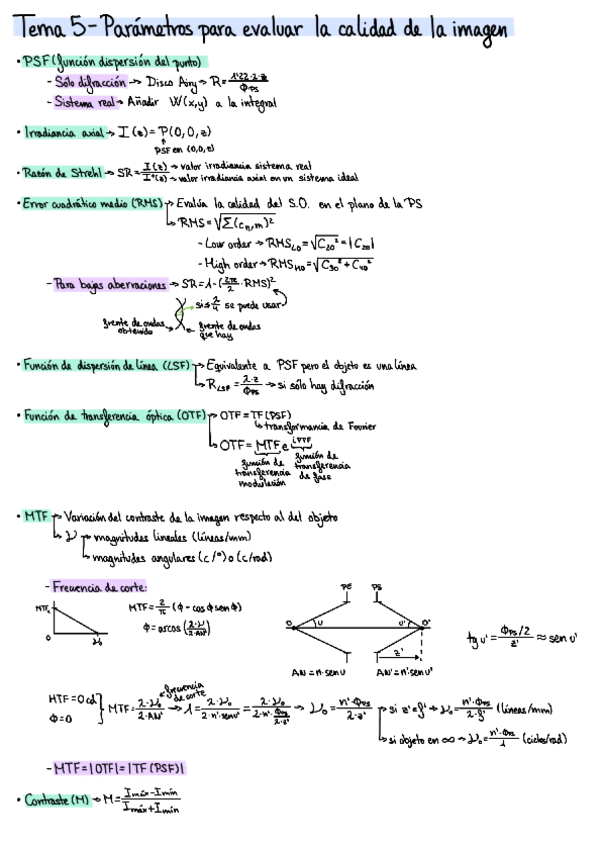 Tema 5-Parámetros para evaluar la calidad de la imagen
• PSF (función dispersión del punto)
- Sólo difracción → Disco Airy → R = 1'22·λ·z / ΦPS
- Sistema real → Añadir W(x,y) a la integral
• Irradiancia axial → I(z) = P(0,0,z)
PSF en (0,0,z)
• Razón de Strehl → SR = I(z) / I*(z) → valor irradiancia sistema real
→ valor irradiancia axial en un sistema ideal
• Error cuadrático medio (RMS) → Evalúa la calidad del S.O. en el plano de la PS
↳ RMS = √Σ(cn,m)²
- Low order → RMSLO = √C20² = |C20|
- High order → RMSHO = √C30² + C40²
- Para bajas aberraciones → SR = 1 - (2π/λ · RMS)²
si ≤ λ/4 se puede usar
frente de ondas obtenido
frente de ondas que hay
• Función de dispersión de línea (LSF) → Equivalente a PSF pero el objeto es una línea
↳ RLSF = λ·z / ΦPS → si sólo hay difracción
• Función de transferencia óptica (OTF) → OTF = TF(PSF)
↳ transformancia de Fourier
↳ OTF = MTF e^iPTF
función de transferencia modulación
función de transferencia de fase
• MTF → Variación del contraste de la imagen respecto al del objeto
↳ ν → magnitudes lineales (líneas/mm)
↳ magnitudes angulares (c/°) o (c/rad)
- Frecuencia de corte:
MTF = 2/π (Φ - cosΦ senΦ)
Φ = arcos (λ·ν / 2·AN')
0 ν₀
PE PS
O u u' O'
z'
AN = n·sen u AN' = n'·sen u'
tg u' = ΦPS/2 / z' ≈ sen u'
MTF = 0 cd
Φ = 0
frecuencia de corte
MTF = λ·ν₀ / 2·AN' → 1 = λ·ν₀ / 2·n'·sen u' = λ·ν₀ / 2·n'·ΦPS/2·z' → ν₀ = n'·ΦPS / λ·z' → si z' = f' → ν₀ = n'·ΦPS / λ·f' (líneas/mm)
↳ si objeto en ∞ → ν₀ = n'·ΦPS / λ (ciclos/rad)
- MTF = |OTF| = |TF(PSF)|
• Contraste (M) → M = Imáx - Imín / Imáx + Imín